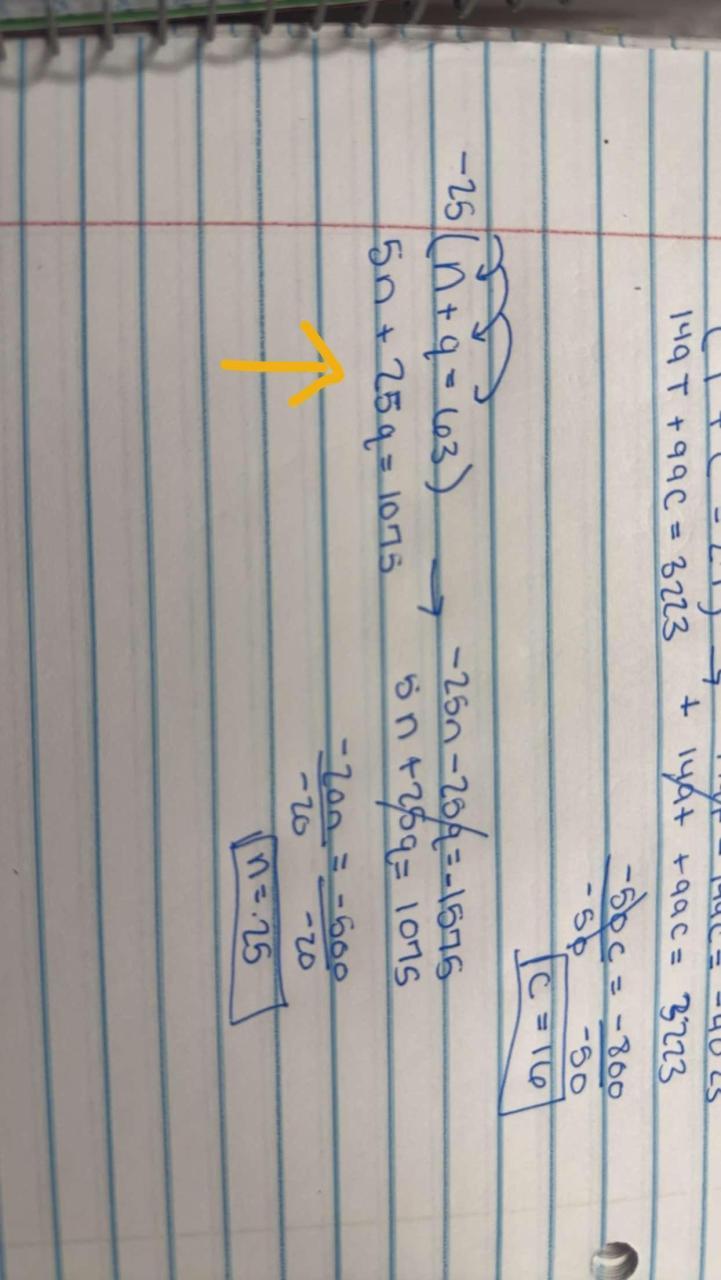 149T + 99C = 3223 + 149t + 99C = 3223
-50C = -800
-50 -50
C = 16
-25(n + q = 63) → -25n - 25q = -1575
5n + 25q = 1075 5n + 25q = 1075
-20n = -500
-20 -20
n = 25